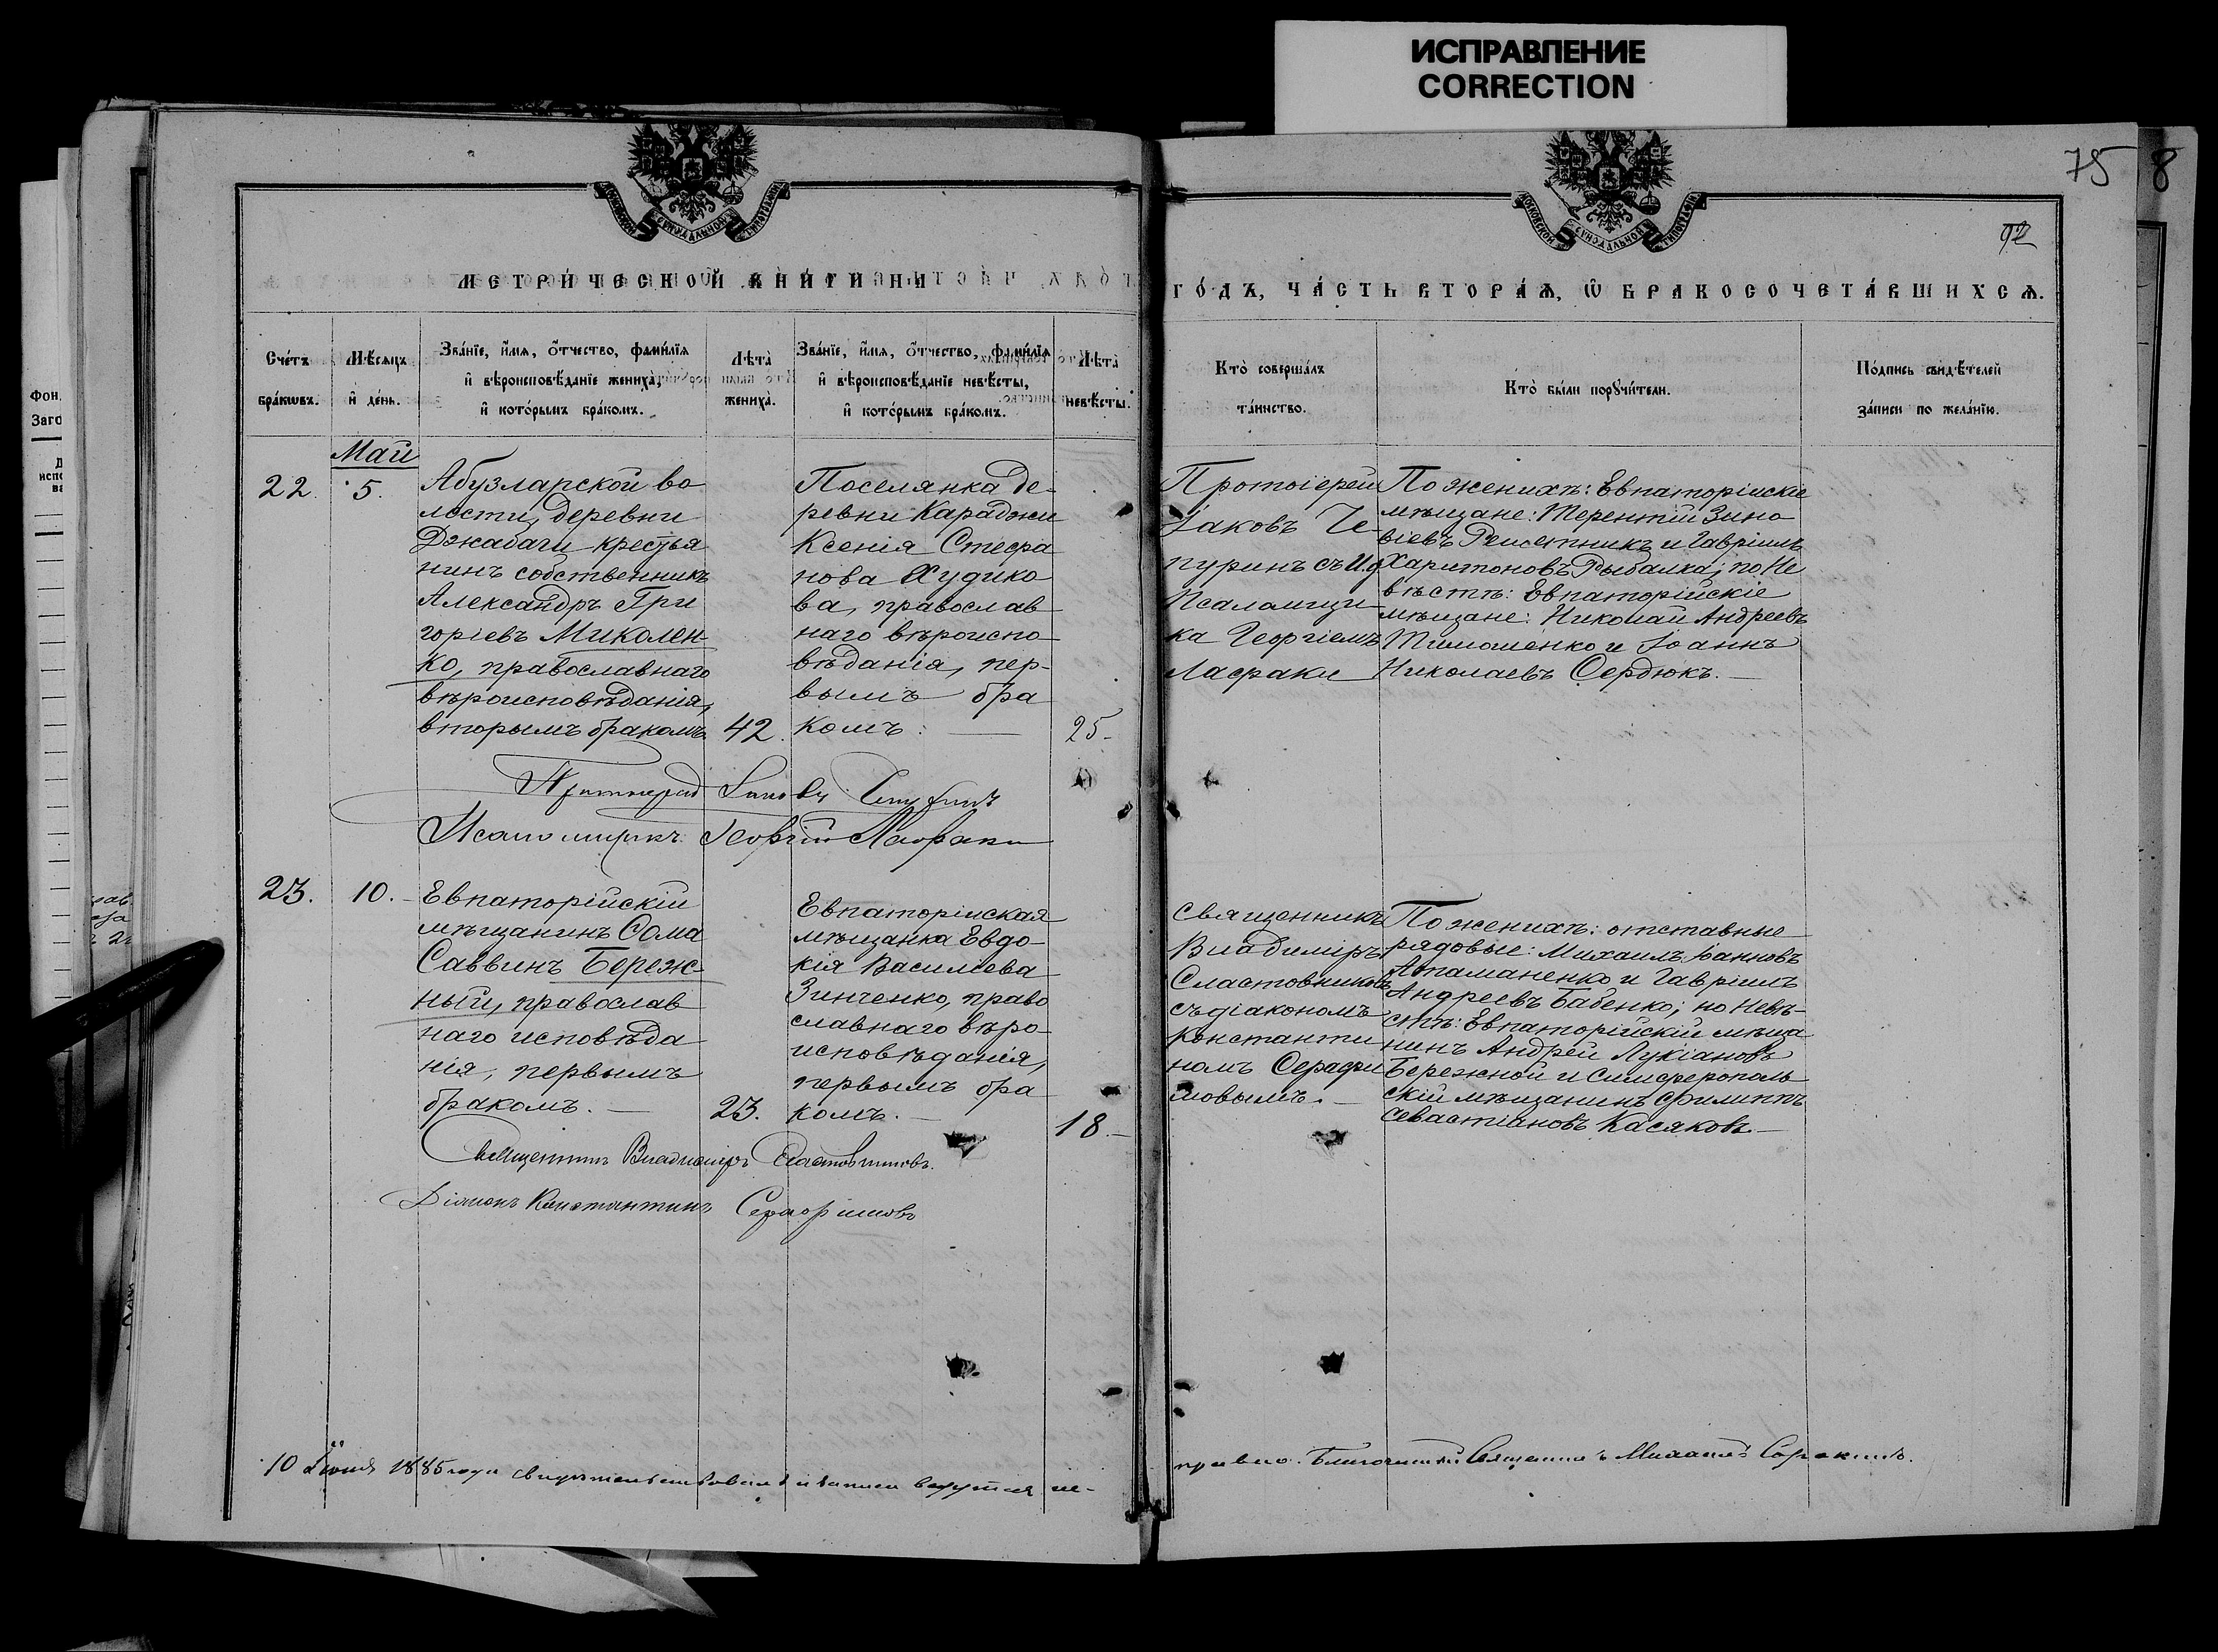 ИСПРАВЛЕНИЕ
CORRECTION
75
8
92
МЕТРИЧЕСКОЙ КНИГИ НА
ГОДЪ, ЧАСТЬ ВТОРАЯ, Ѡ БРАКОСОЧЕТАВШИХСЯ.
Счетъ браковъ.
Мѣсяцъ и день.
Званіе, имя, отчество, фамилія
и вѣроисповѣданіе жениха,
и которымъ бракомъ.
Лѣта
жениха.
Званіе, имя, отчество, фамилія
и вѣроисповѣданіе невѣсты,
и которымъ бракомъ.
Лѣта
невѣсты.
Кто совершалъ
таинство.
Кто были поручители.
Подпись свидѣтелей
записи по желанію.
Май
22.
5.
Абузларской во
лости, деревни
Джабачи крестья
нинъ собственникъ
Александръ Гри
горіевъ Миколен-
ко, православнаго
вѣроисповѣданія,
вторымъ бракомъ
42.
Поселянка де-
ревни Караджи
Ксенія Стефа
нова Худико
ва, православ
наго вѣроиспо-
вѣданія, пер-
вымъ бра
комъ.
25.
Протоіерей
Іаковъ Че-
пуринъ съ И.д.
Псаломщи-
ка Георгіемъ
Лафраки
По женихѣ: Евпаторійскіе
мѣщане: Терентій Зино
віевъ Решетникъ и Гавріилъ
Харитоновъ Рыбалка; по Не
вѣстѣ: Евпаторійскіе
мѣщане: Николай Андреевъ
Тимошенко и Іоаннъ
Николаевъ Сердюкъ.
Протоіерей Іаковъ Чепуринъ
Псаломщикъ Георгій Лафраки
23.
10.
Евпаторійскій
мѣщанинъ Ѳома
Саввинъ Береж-
ный, православ
наго исповѣда
нія, первымъ
бракомъ.
23.
Евпаторійская
мѣщанка Евдо-
кія Василіева
Зинченко, право
славнаго вѣро-
исповѣданія,
первымъ бра
комъ.
18
Священникъ
Владиміръ
Сластовниковъ
съ діакономъ
Константи
номъ Серафи
мовымъ.
По женихѣ: отставные
рядовые: Михаилъ Іанновъ
Атаманенко и Гавріилъ
Андреевъ Бабенко; по Невѣ-
стѣ: Евпаторійскій мѣща
нинъ Андрей Лукіановъ
Бережной и Симферополь
скій мѣщанинъ Филиппъ
Севастіановъ Касяковъ.
Священникъ Владиміръ Сластовниковъ.
Діаконъ Константинъ Серафимовъ
10 Іюня 1885 года свидѣтельствовалъ и записи ведутся ис-
правно. Благочинный Священникъ Михаилъ Сорокинъ.